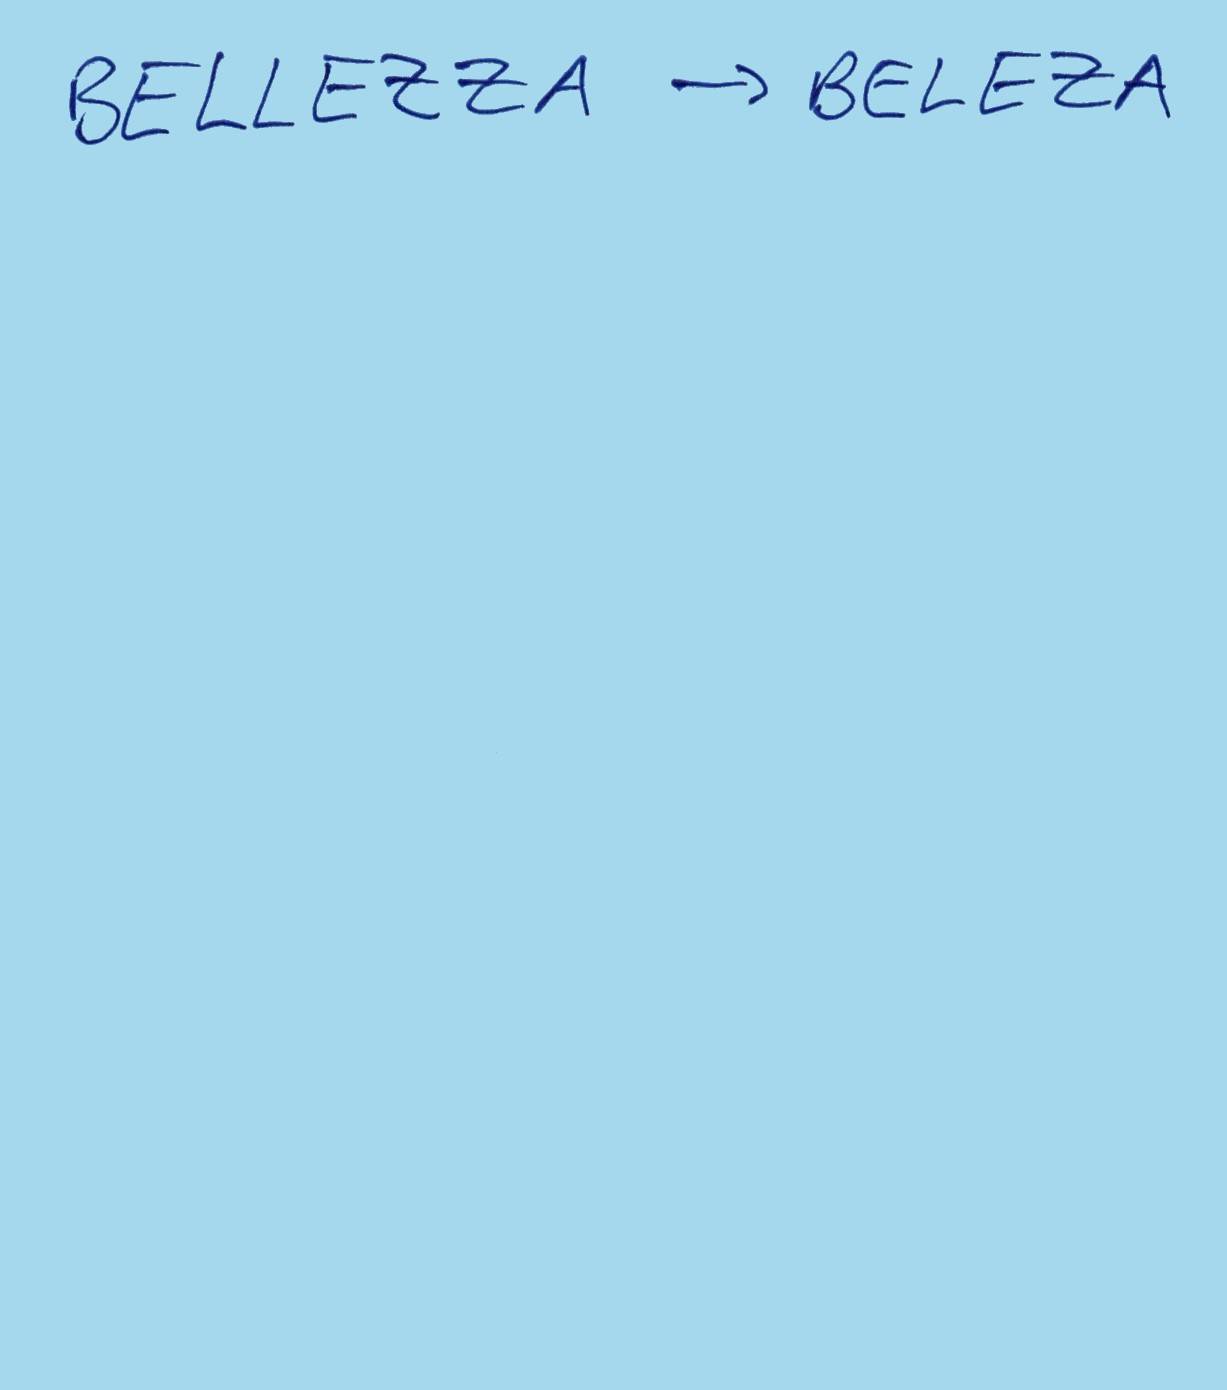 BELLEZZA → BELEZA